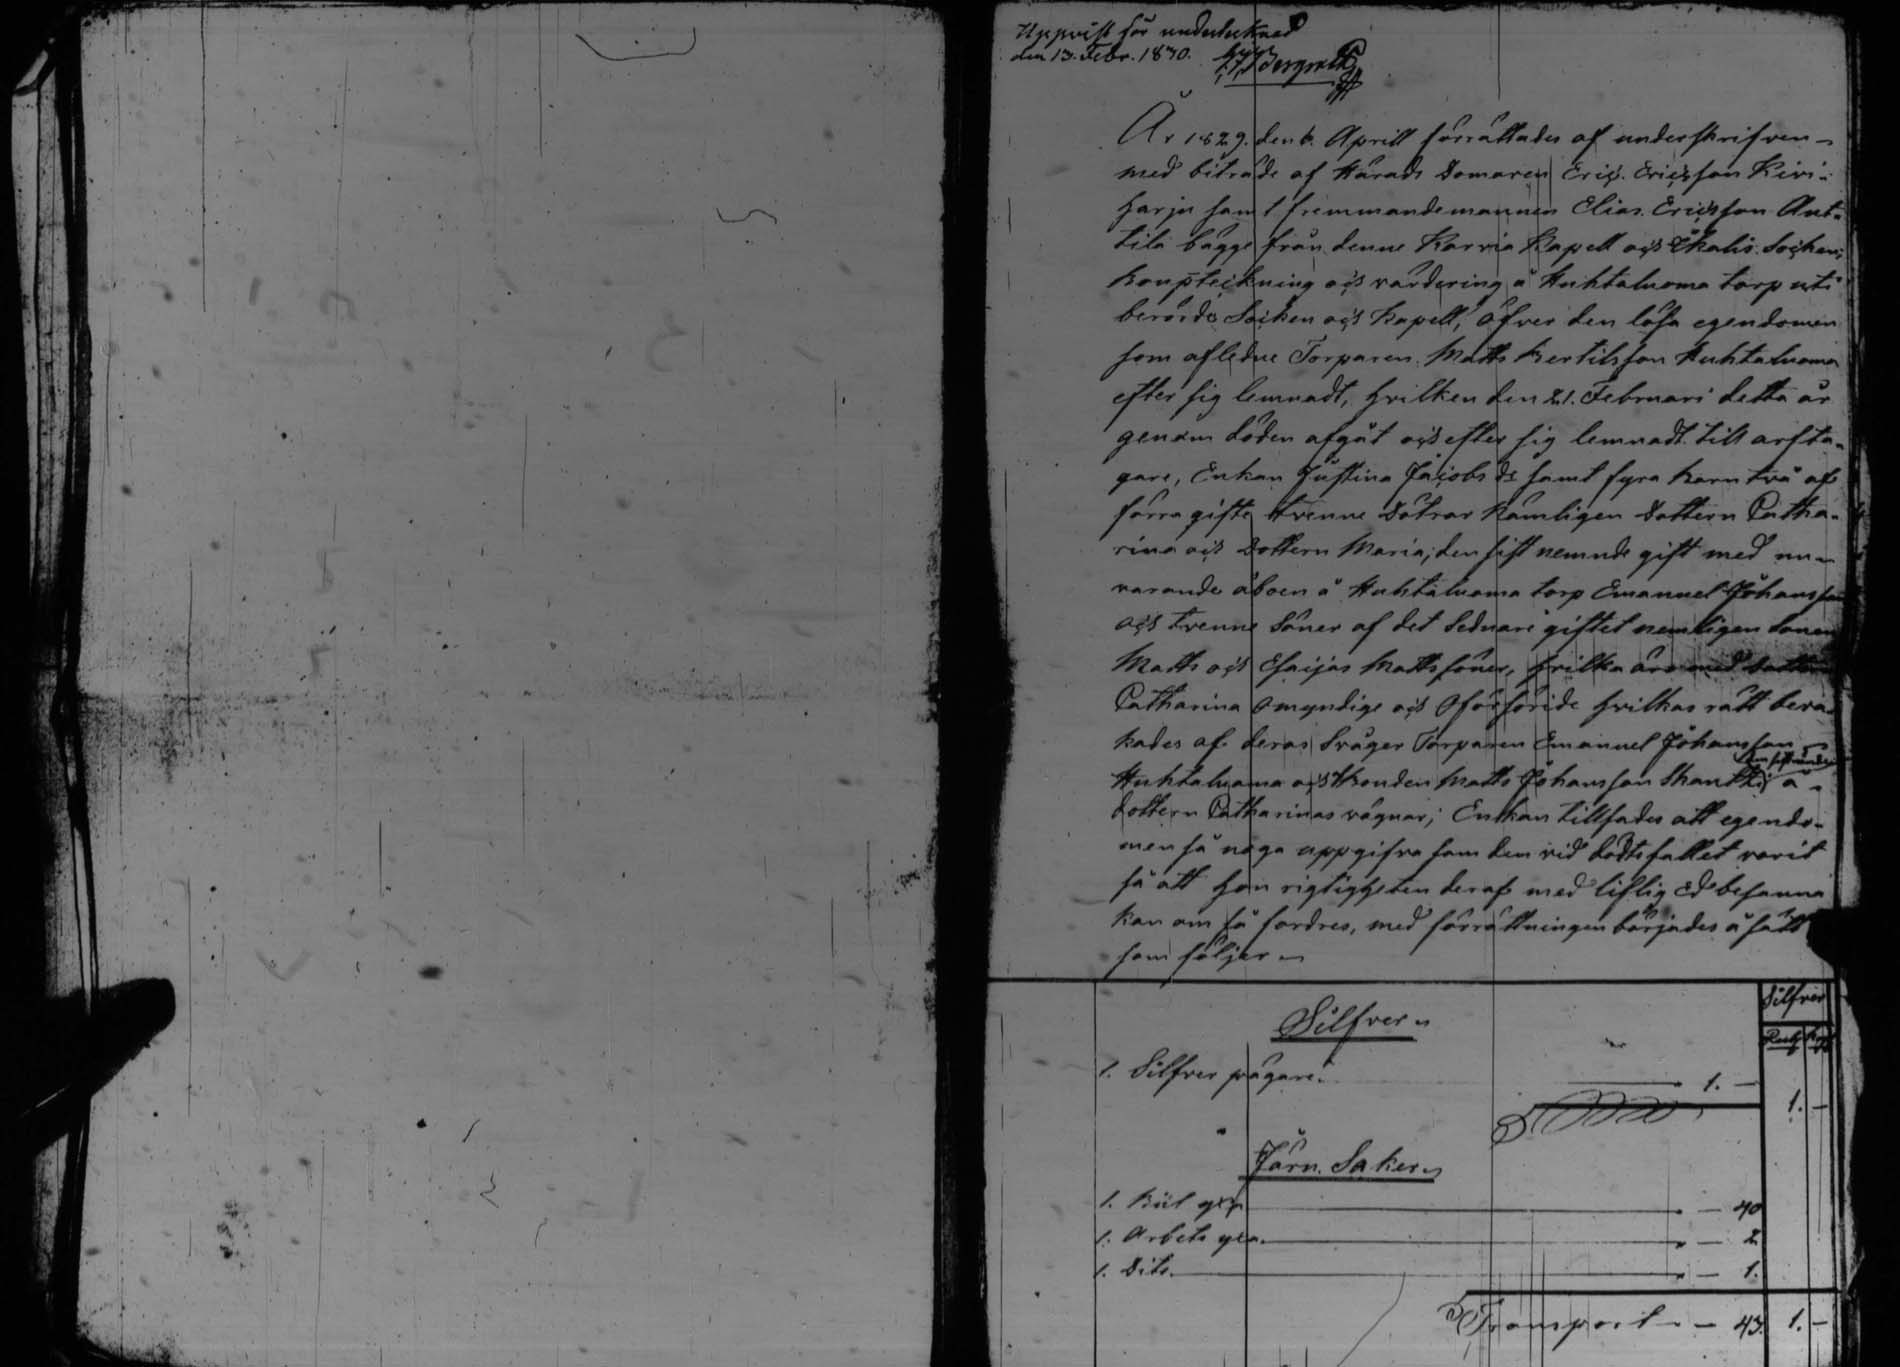 Uppvist för undertecknad
den 13. Febr. 1830.
År 1829. den 6. Aprill förrättades af underskrifven
med biträde af Härads Domaren Eric Ericsson Kivi-
harju samt fremmandemannen Elias Ericsson Ant-
tila bägge från denne Karvia Kapell och Ikalis Socken,
bouptekning och värdering å Huhtaluoma torp uti
berörde Socken och Kapell, öfver den lösa egendomen
som afledne Torparen Matts Bertilsson Huhtaluoma
efter sig lemnadt, hvilken den 21. Februari detta år
genom döden afgåt och efter sig lemnadt till arfta-
gare, Enkan Justina Jacobs dr samt fyra barn två af
förra gifte tvenne Dötrar nämligen Dottern Catha-
rina och Dottern Maria, den sist nemnde gift med nu-
varande åboen å Huhtaluoma torp Emanuel Johansson
och tvenne Söner af det Sednare giftet nemligen sonen
Matts och Esaijas Mattssöner, hvilka äro med dottern
Catharina omyndige och Oförsörde hvilkas rätt beva-
kades af deras Svåger Torparen Emanuel Johansson
Huhtaluoma och Bonden Matts Johansson Skantki å
dottern Catharinas vägnar; Enkan tillsades att egendo-
men så noga uppgifva som den vid dödsfallet varit
så att hon rigtigheten deraf med liflig Ed besanna
kan om så fordres, med förrättningen börjades å sätt
som följer
Silfver
Silfver
Rub Kop
1. Silfver pägare. 1. —
1. —
Järn Saker
1. Bil yxa — 40
1. Arbets yxa — 2
1. Dito — 1.
Transport — 43. 1. —